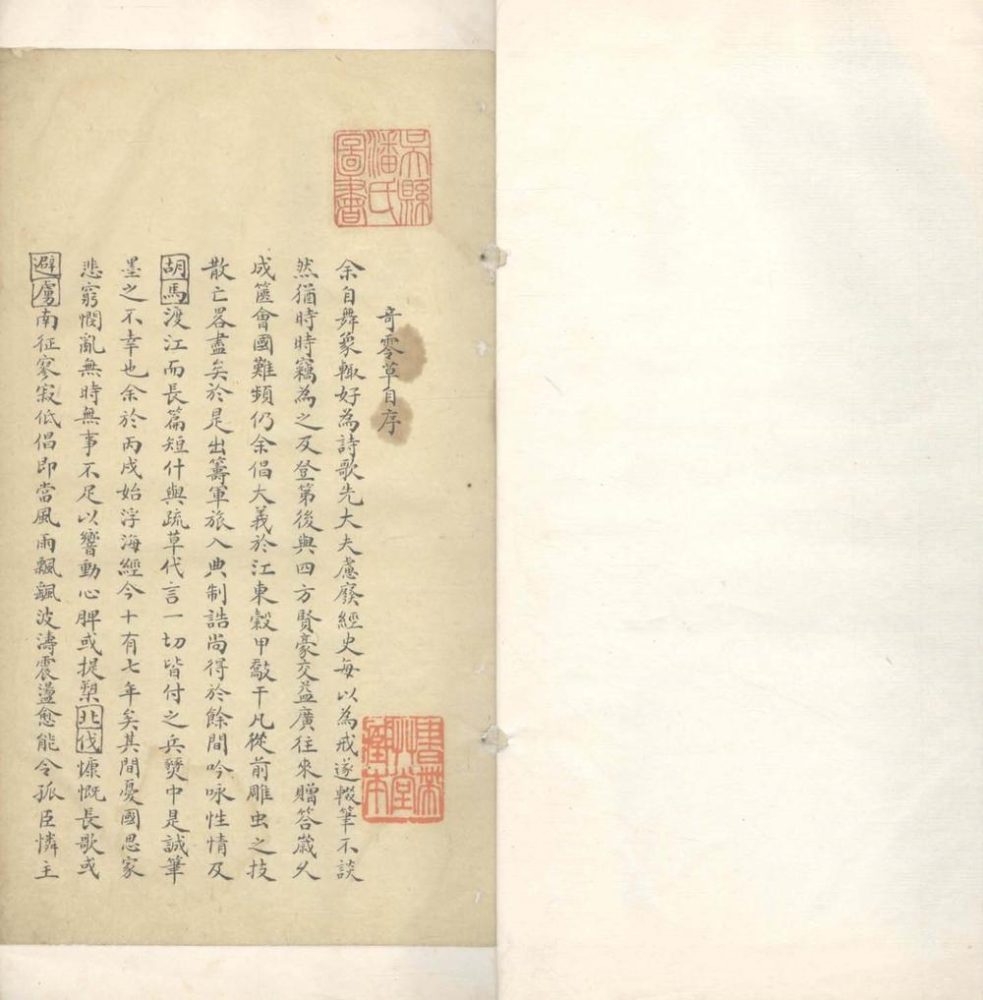 吳縣
潘氏
圖書
奇零草自序
余自舞象輒好為詩歌先大夫慮廢經史每以為戒遂輟筆不談
然猶時時竊為之及登第後與四方賢豪交益廣往來贈答歲久
成篋會國難頻仍余倡大義於江東㲄甲敽干凡從前雕虫之技
散亡畧盡矣於是出籌軍旅入典制誥尚得於餘間吟咏性情及
胡馬渡江而長篇短什與疏草代言一切皆付之兵燹中是誠筆
墨之不幸也余於丙戌始浮海經今十有七年矣其間憂國思家
悲窮憫亂無時無事不足以響動心脾或提槊北伐慷慨長歌或
避虜南征寥寂低倡即當風雨飄颻波濤震盪愈能令孤臣憐主
堂